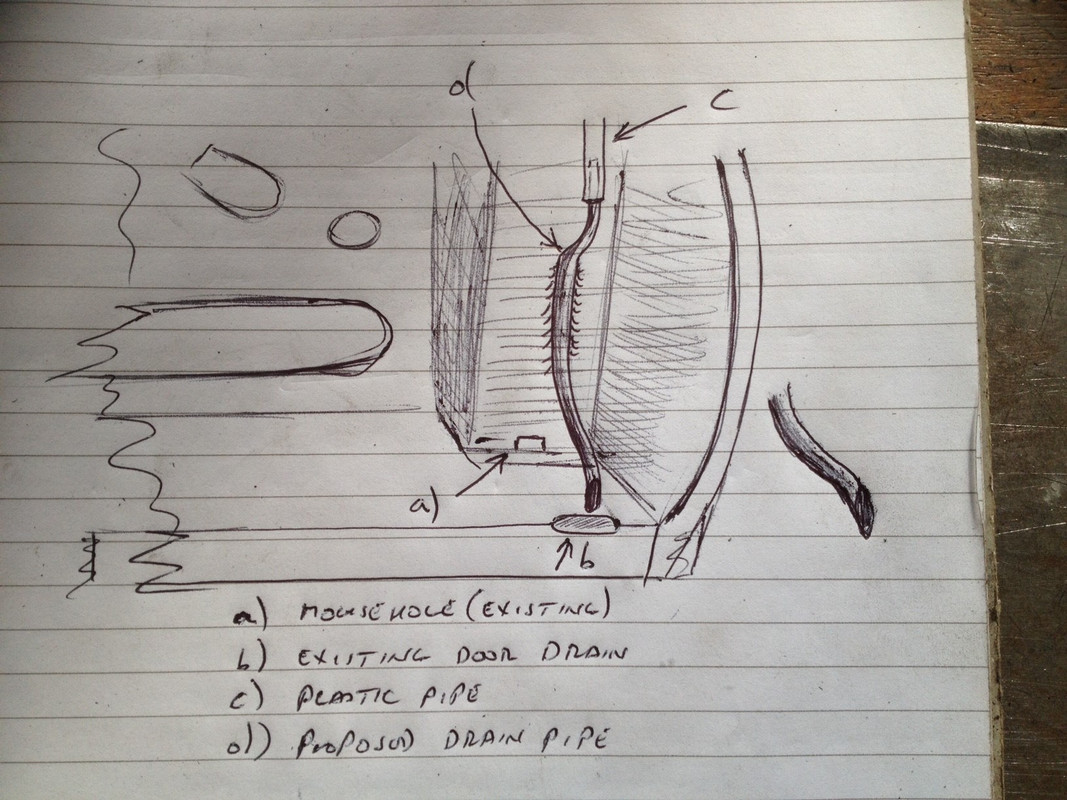 d
c
a)
b
a) MOUSEHOLE (EXISTING)
b) EXISTING DOOR DRAIN
c) PLASTIC PIPE
d) PROPOSED DRAIN PIPE